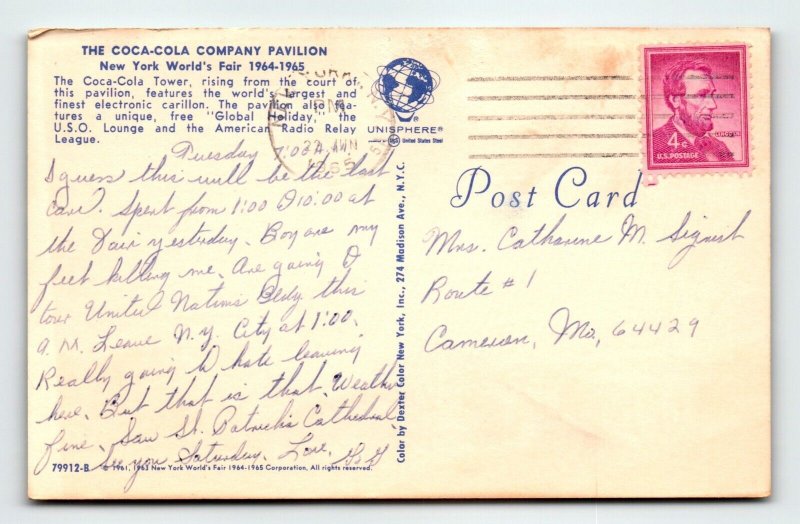 THE COCA-COLA COMPANY PAVILION
New York World's Fair 1964-1965
The Coca-Cola Tower, rising from the court of
this pavilion, features the world's largest and
finest electronic carillon. The pavilion also fea-
tures a unique, free "Global Holiday," the
U.S.O. Lounge and the American Radio Relay
League.
UNISPHERE®
United States Steel
4¢
LINCOLN
U.S. POSTAGE
Post Card
Tuesday 7:00 A.M.
I guess this will be the last
card. Spent from 1:00 to 10:00 at
the Fair yesterday. Boy are my
feet killing me. Are going to
tour United Nations Bldg this
a.m. Leave N.Y. City at 1:00.
Really going to hate leaving
here. But that is that. Weather
fine. Saw St. Patrick's Cathedral.
See you Saturday. Love,
Mrs. Catharine M. Sigrist
Route #1
Cameron, Mo, 64429
Color by Dexter Color New York, Inc., 274 Madison Ave., N.Y.C.
79912-B
© 1961, 1963 New York World's Fair 1964-1965 Corporation. All rights reserved.